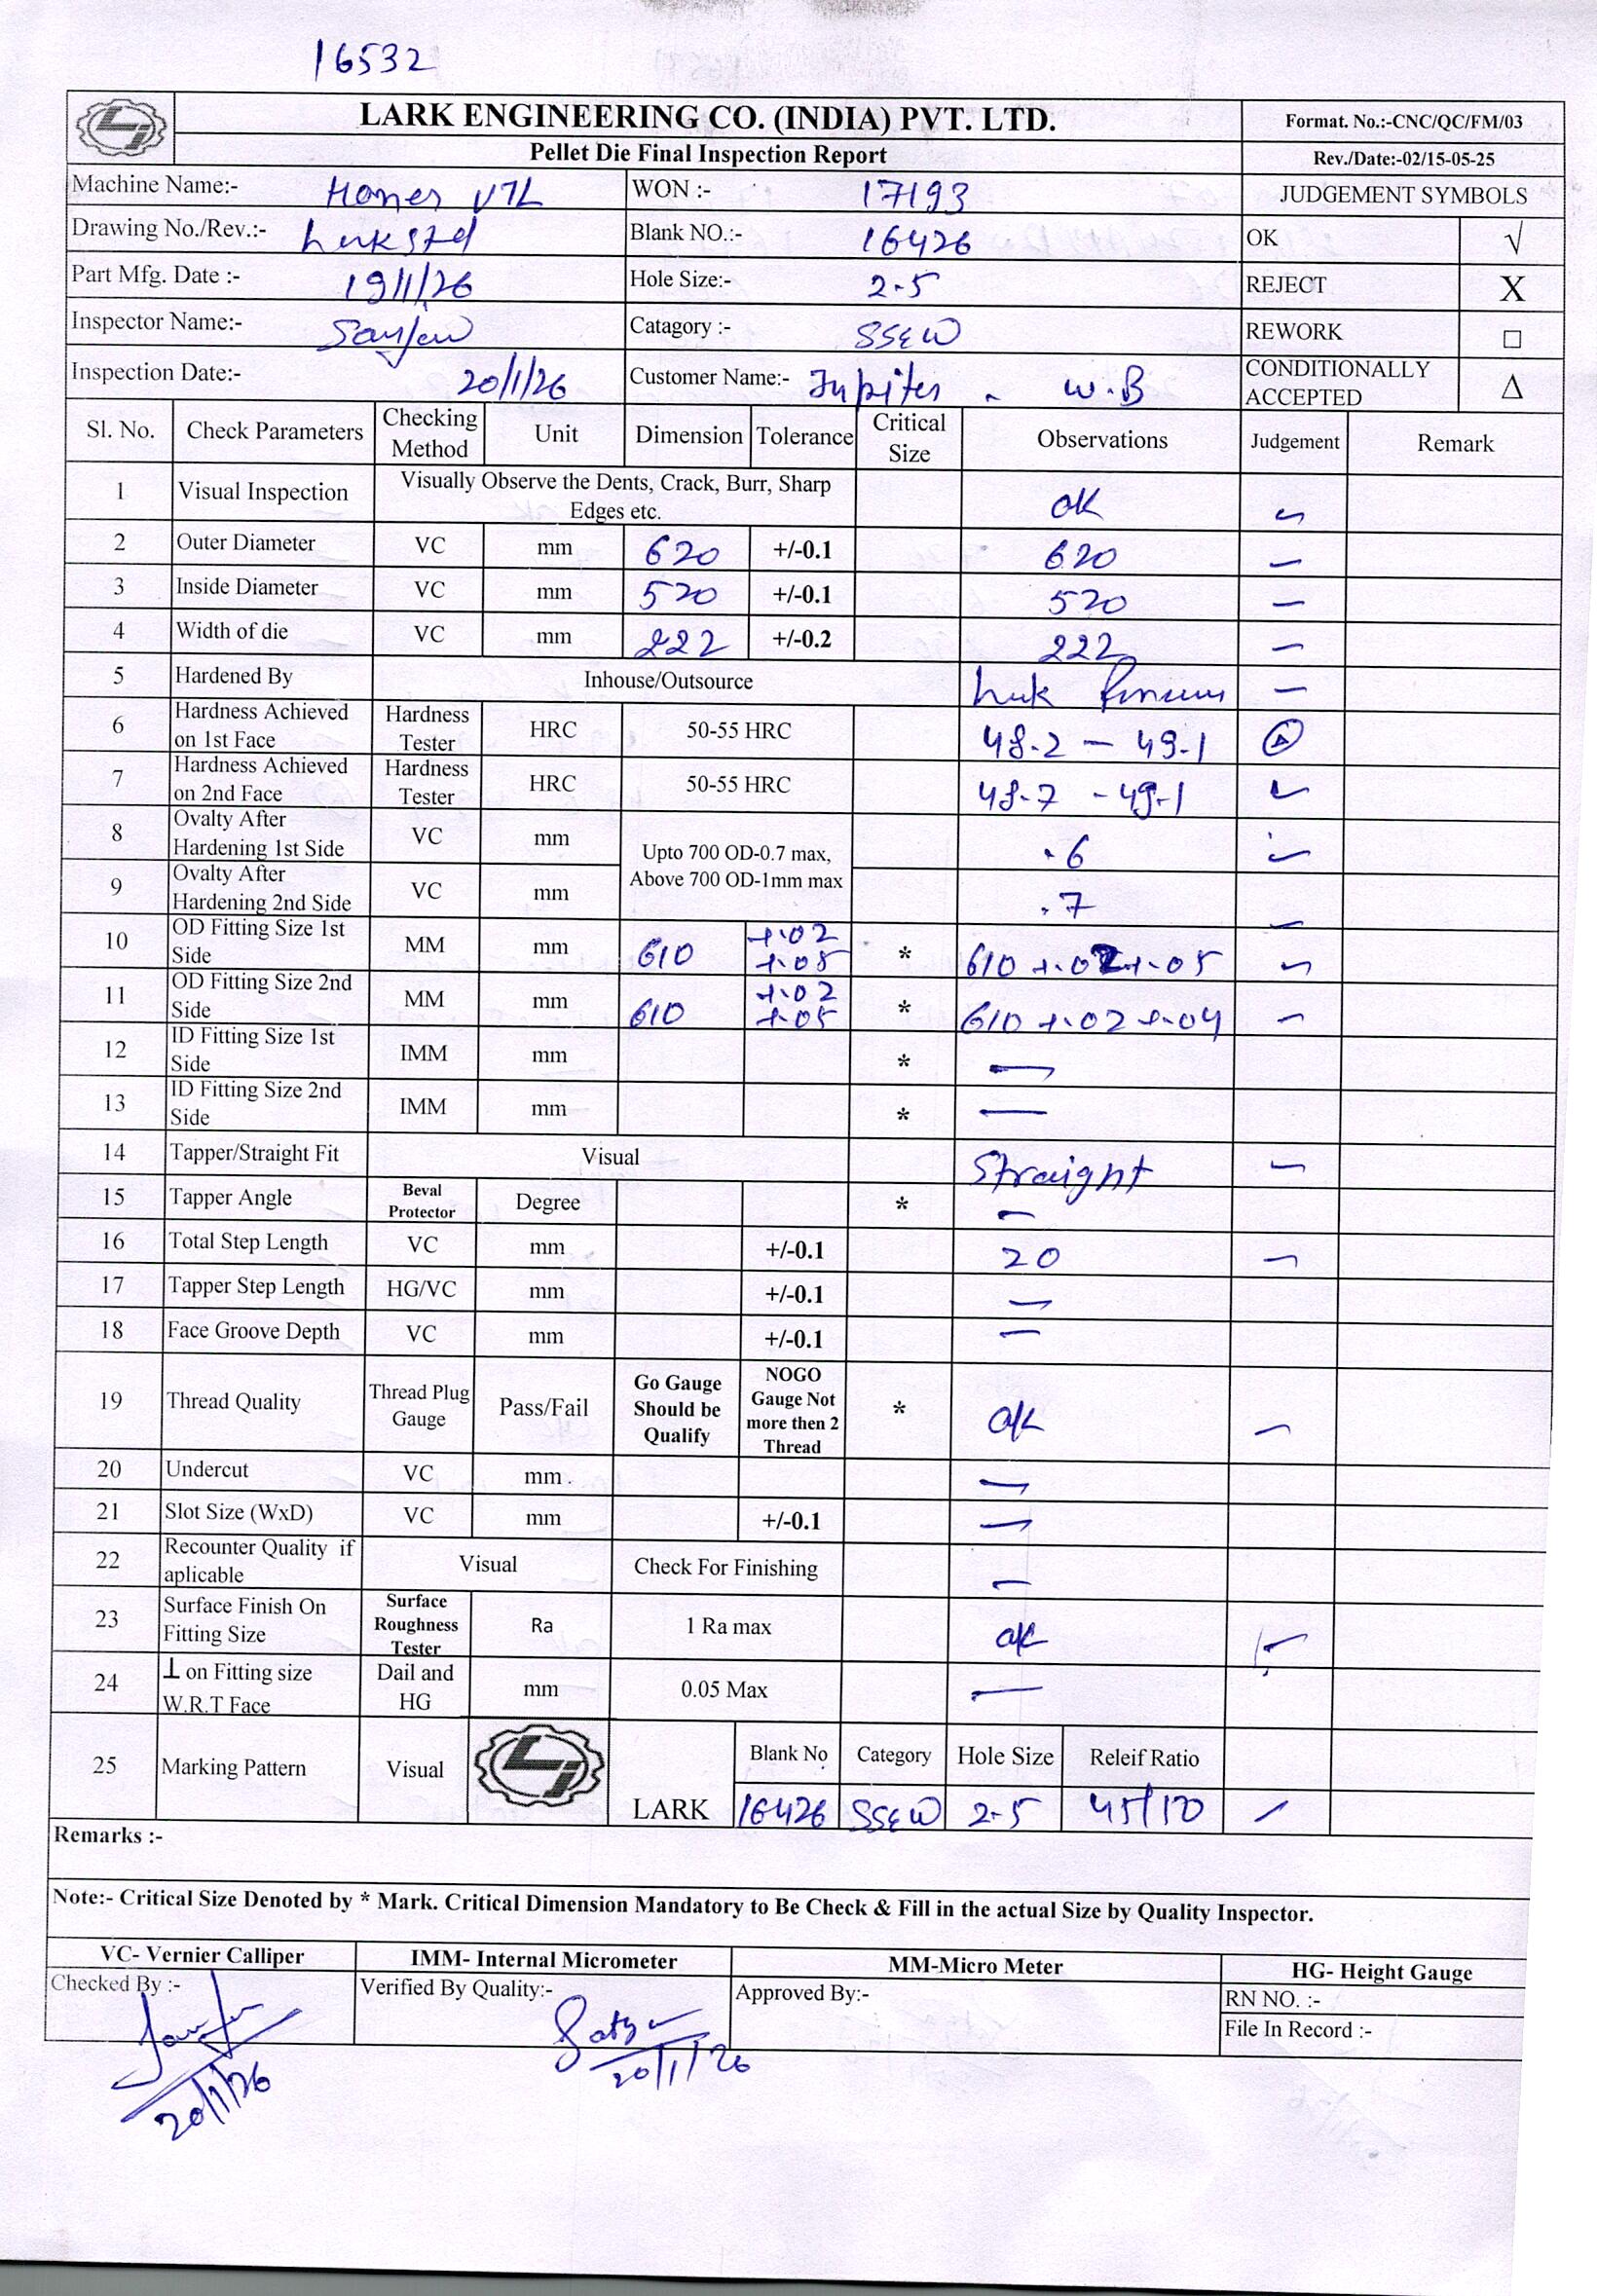 16532
LARK ENGINEERING CO. (INDIA) PVT. LTD. Format. No.:-CNC/QC/FM/03
Pellet Die Final Inspection Report Rev./Date:-02/15-05-25
Machine Name:- VTL WON :- 17193 JUDGEMENT SYMBOLS
Drawing No./Rev.:- Blank NO.:- 16426 OK √
Part Mfg. Date :- 19/1/26 Hole Size:- 2.5 REJECT X
Inspector Name:- Catagory :- SSEW REWORK □
Inspection Date:- 20/1/26 Customer Name:- Jupiter - W.B CONDITIONALLY ACCEPTED Δ
Sl. No. Check Parameters Checking Method Unit Dimension Tolerance Critical Size Observations Judgement Remark
1 Visual Inspection Visually Observe the Dents, Crack, Burr, Sharp Edges etc. OK
2 Outer Diameter VC mm 620 +/-0.1 620
3 Inside Diameter VC mm 520 +/-0.1 520
4 Width of die VC mm 222 +/-0.2 222
5 Hardened By Inhouse/Outsource
6 Hardness Achieved on 1st Face Hardness Tester HRC 50-55 HRC 48.2 - 49.1 Δ
7 Hardness Achieved on 2nd Face Hardness Tester HRC 50-55 HRC 48.7 - 49.1
8 Ovalty After Hardening 1st Side VC mm Upto 700 OD-0.7 max, Above 700 OD-1mm max .6
9 Ovalty After Hardening 2nd Side VC mm .7
10 OD Fitting Size 1st Side MM mm 610 +.02 +.05 * 610 +.02 +.05
11 OD Fitting Size 2nd Side MM mm 610 +.02 +.05 * 610 +.02 +.04
12 ID Fitting Size 1st Side IMM mm * —
13 ID Fitting Size 2nd Side IMM mm * —
14 Tapper/Straight Fit Visual Straight
15 Tapper Angle Beval Protector Degree * —
16 Total Step Length VC mm +/-0.1 20
17 Tapper Step Length HG/VC mm +/-0.1 —
18 Face Groove Depth VC mm +/-0.1 —
19 Thread Quality Thread Plug Gauge Pass/Fail Go Gauge Should be Qualify NOGO Gauge Not more then 2 Thread * OK
20 Undercut VC mm . —
21 Slot Size (WxD) VC mm +/-0.1 —
22 Recounter Quality if aplicable Visual Check For Finishing —
23 Surface Finish On Fitting Size Surface Roughness Tester Ra 1 Ra max OK
24 ⊥ on Fitting size W.R.T Face Dail and HG mm 0.05 Max —
25 Marking Pattern Visual LARK Blank No Category Hole Size Releif Ratio
16426 SSEW 2.5 45/10
Remarks :-
Note:- Critical Size Denoted by * Mark. Critical Dimension Mandatory to Be Check & Fill in the actual Size by Quality Inspector.
VC- Vernier Calliper IMM- Internal Micrometer MM-Micro Meter HG- Height Gauge
Checked By :- Verified By Quality:- Approved By:- RN NO. :-
File In Record :-
20/1/26 20/1/26